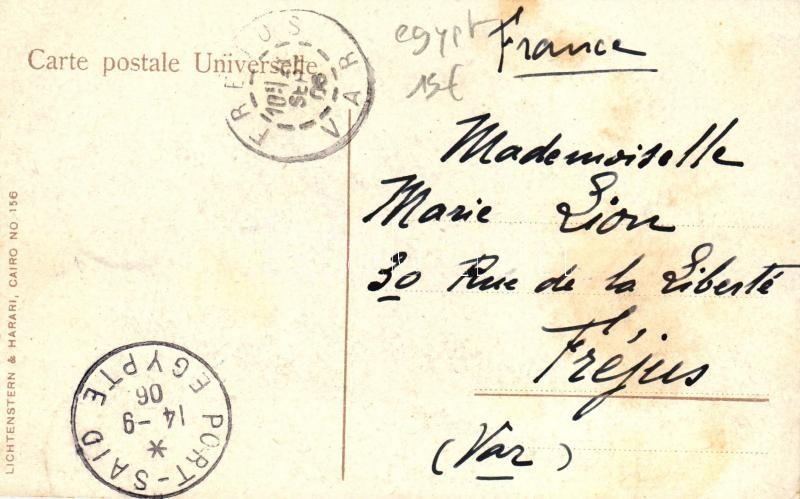 Carte postale Universelle
FREJUS
SEPT
06
VAR
egypt
15£
France
Mademoiselle
Marie Lion
30 Rue de la Liberté
Fréjus
(Var)
LICHTENSTERN & HARARI, CAIRO NO 156
PORT-SAID
EGYPTE
14-9
06